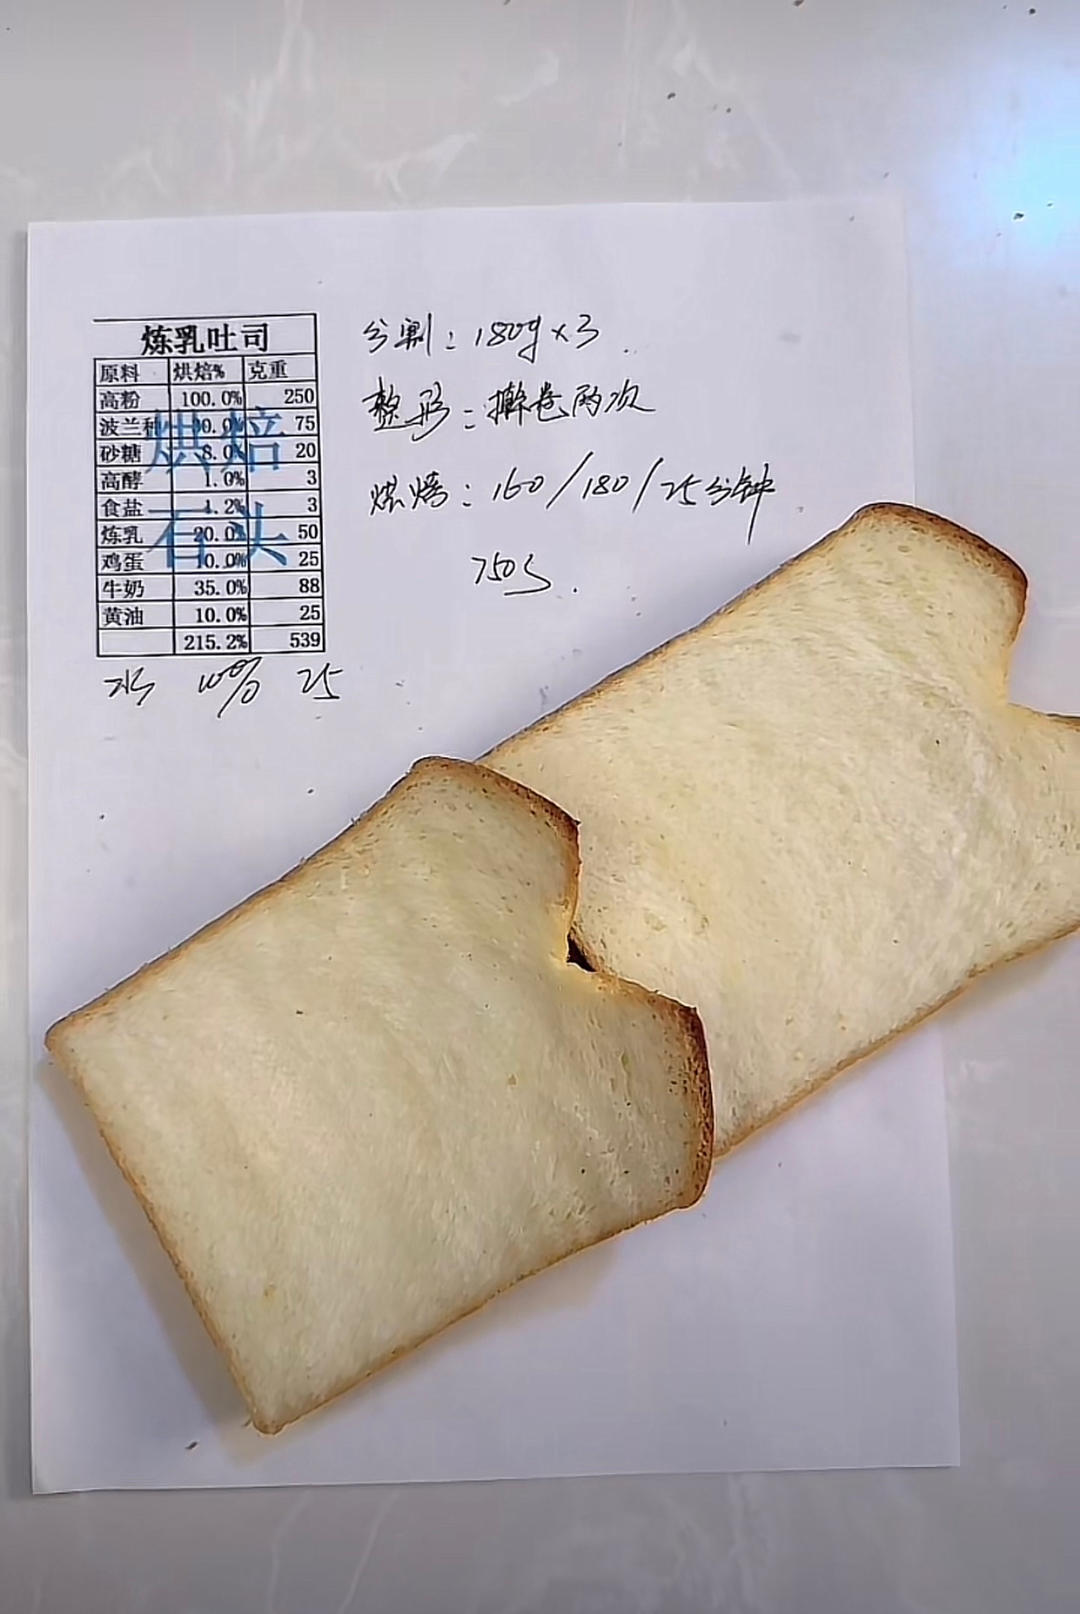 炼乳吐司
原料 烘焙% 克重
高粉 100.0% 250
波兰种 30.0% 75
砂糖 8.0% 20
高酵 1.0% 3
食盐 1.2% 3
炼乳 20.0% 50
鸡蛋 10.0% 25
牛奶 35.0% 88
黄油 10.0% 25
215.2% 539
水 10% 25
烘焙
石头
分割：180g×3
整形：擀卷两次
烘烤：160/180/25分钟